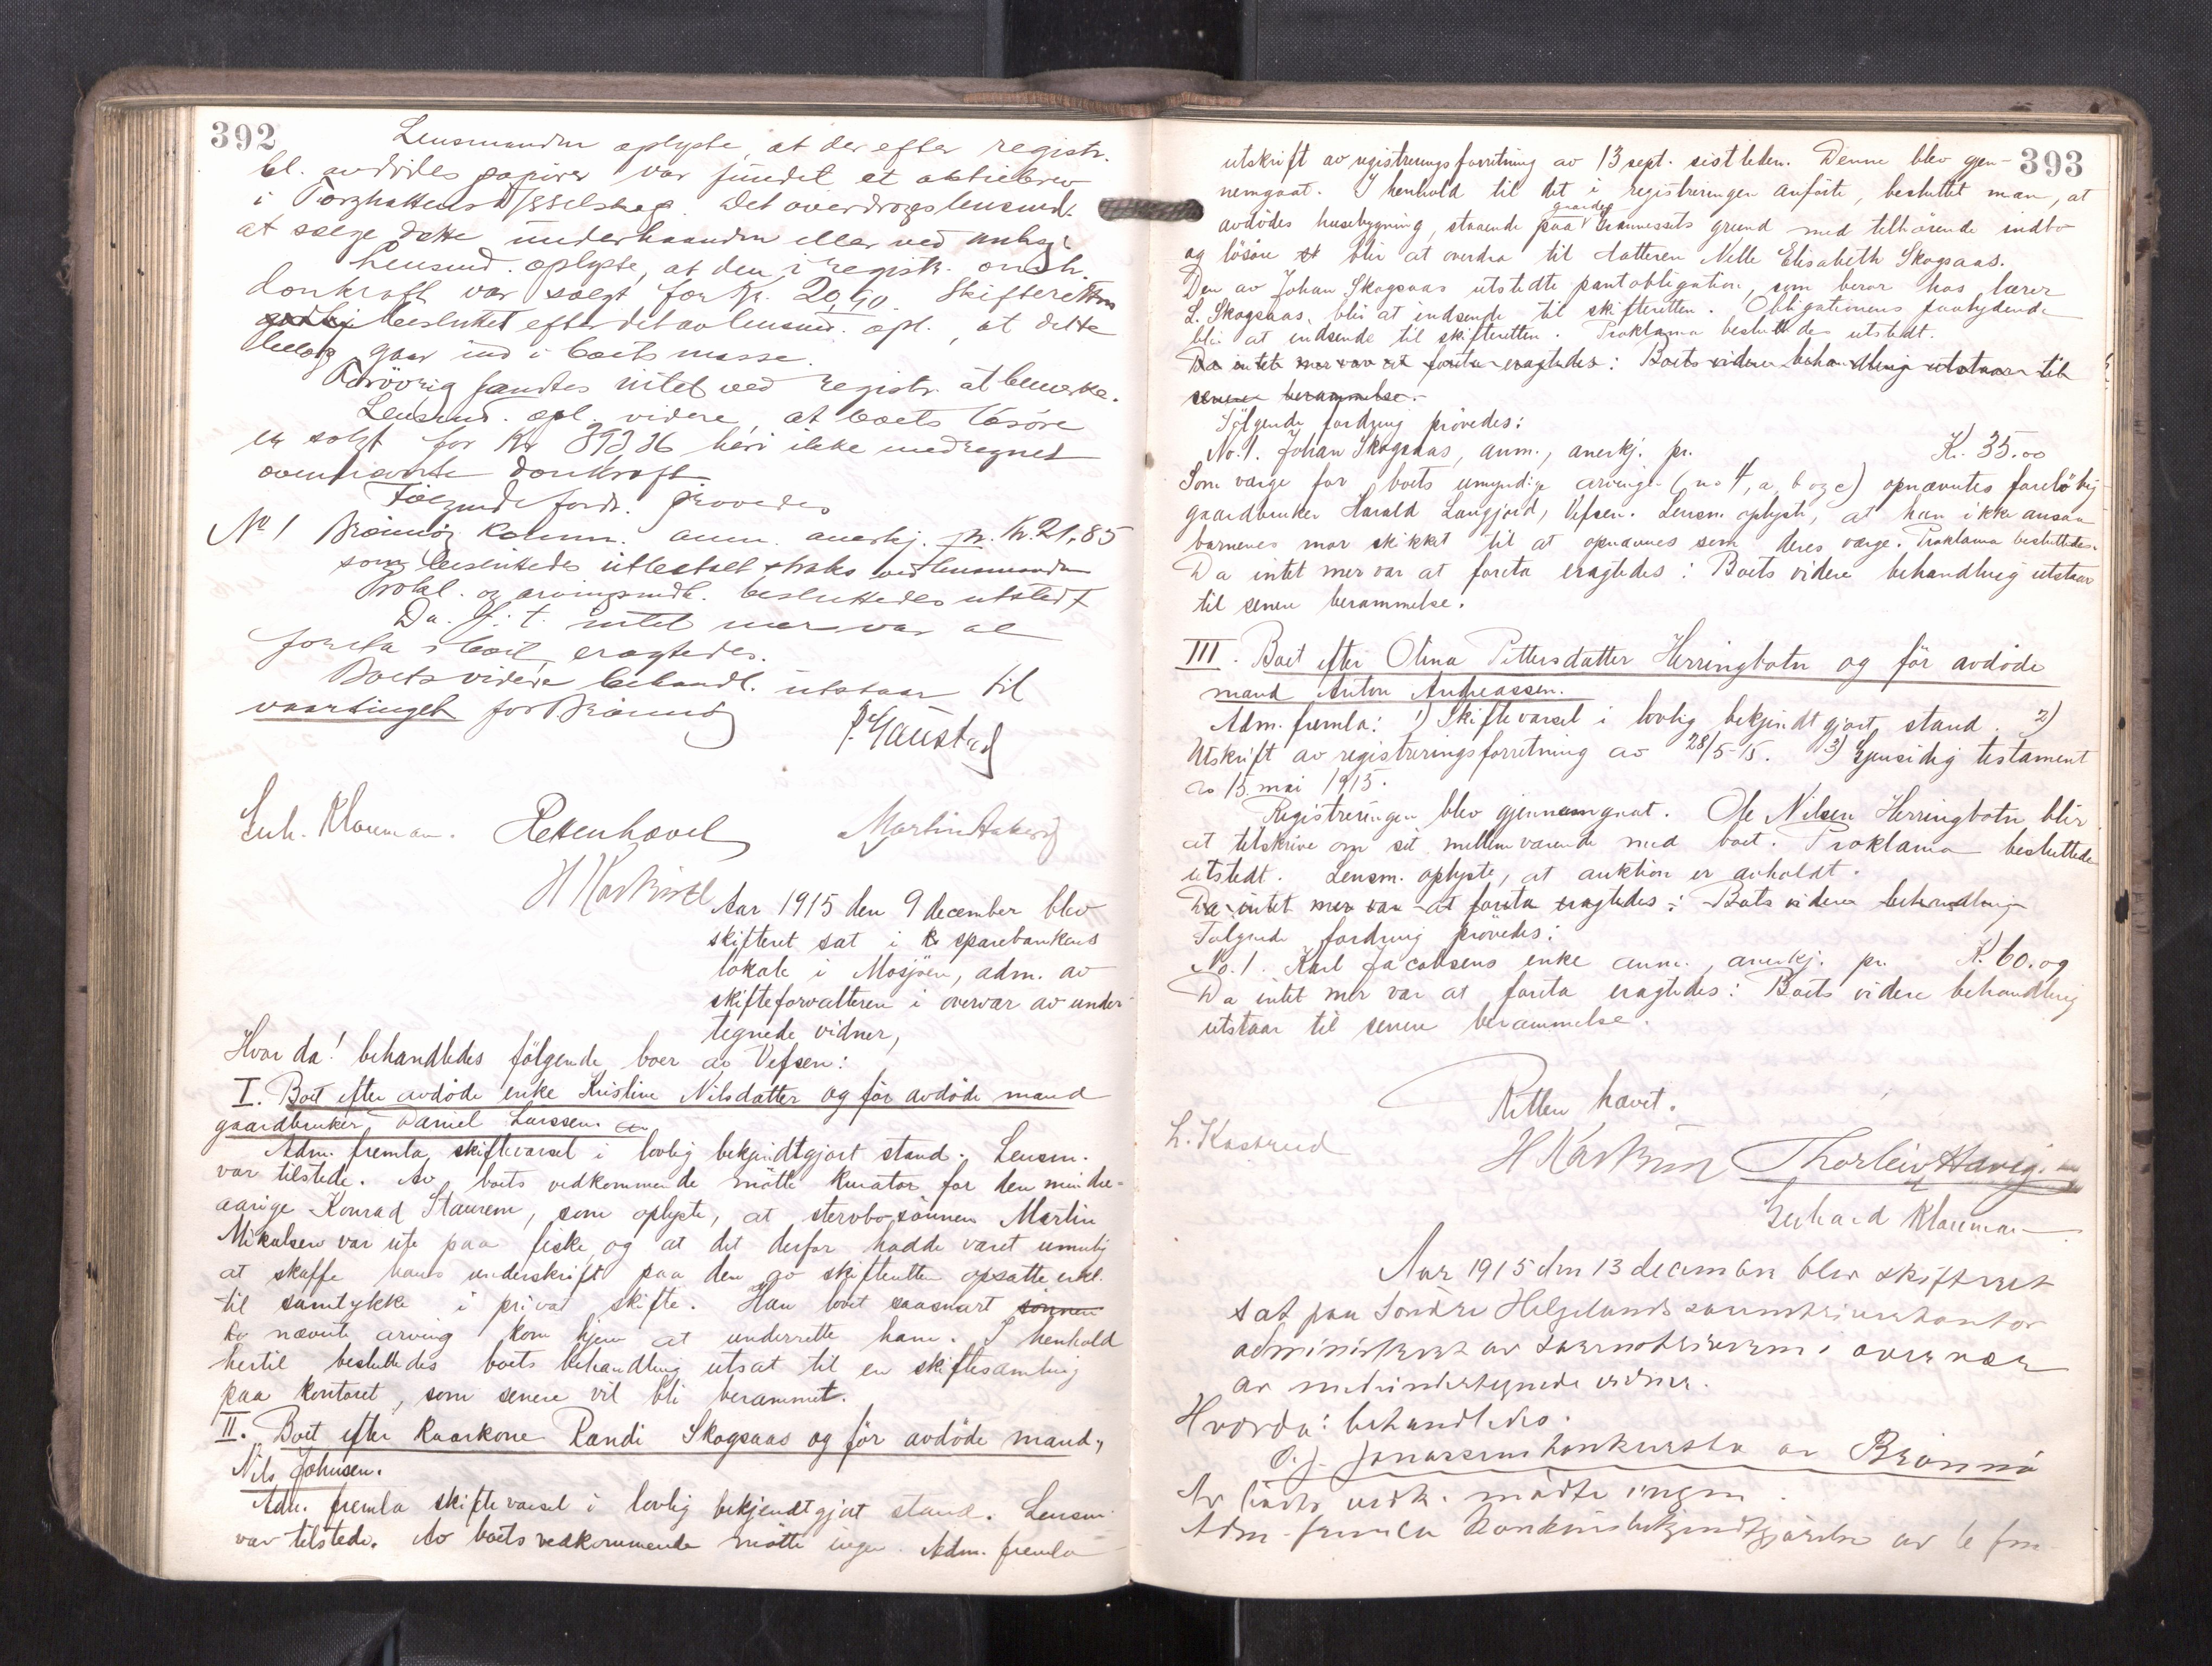 392
Lensmanden oplyste, at der efter registr.
bl. avdødes papirer var fundet et aktiebrev
i Torghattens D/Sselskap. Det overdroges lensmd.
at sælge dette underhaanden eller ved
Lensmd. oplyste, at den i registr.
donkraft var solgt for Kr. 20,50. Skifteretten
besluttet efter det av lensmd. opl., at dette
beløp gaar ind i boets masse.
Forøvrig fandtes intet ved registr. at bemerke.
Lensmd. opl. videre, at boets løsøre
er solgt for Kr 393 36 heri ikke medregnet
ovennævnte donkraft
Følgende fordr. prøvedes
No 1 Brønnøy komm. anm. anerkj. pr. Kr. 21,85
som besluttedes utbetalt straks ved lensmanden
Prokl. og arvingsindk. besluttedes utstedt
Da f. t. intet mer var at
foreta i boet, eragtedes.
Boets videre behandl. utstaar til
vaartinget for Brønnøy
P. Gaustad
Gerh. Klausman. Retten hævet Martin
H Kastrud
Aar 1915 den 9 december blev
skifteret sat i sparebankens
lokale i Mosjøen, adm. av
skifteforvalteren i overvær av under-
tegnede vidner,
Hvor da! behandledes følgende boer av Vefsen:
I. Boet efter avdøde enke Kristine Nilsdatter og før avdøde mand
gaardbruker Daniel Larssen.
Adm. fremla skiftevarsel i lovlig bekjendtgjort stand. Lensm.
var tilstede. Av boets vedkommende møtte kurator for den mindre-
aarige Konrad Staurem, som oplyste, at stervbosønnen Martin
Mikalsen var ute paa fiske og at det derfor hadde været umulig
at skaffe hans underskrift paa den av skifteretten opsatte erkl.
til samtykke i privat skifte. Han lovet saasnart sønnen
nævnte arving kom hjem at underrette ham. I henhold
hertil besluttedes boets behandling utsat til en skiftesamling
paa kontoret, som senere vil bli berammet.
II. Boet efter kaarkone Randi Skogsaas og før avdøde mand,
Nils Johnsen.
Adm. fremla skiftevarsel i lovlig bekjendtgjort stand. Lensm.
var tilstede. Av boets vedkommende møtte ingen. Adm. fremla
393
utskrift av registreringsforretning av 13 sept. sistleden. Denne blev gjen-
nemgaat. I henhold til det i registreringen anførte, besluttet man, at
avdødes husebygning, staaende paa gaarden grund med tilhørende indbo
og løsøre blir at overdra til datteren Nelle Elisabeth Skogsaas.
Den av Johan Skogsaas utstedte pantobligation, som beror hos lærer
L. Skogsaas, blir at indsende til skifteretten. Obligationens paalydende
blir at indsende til skifteretten. Proklama besluttedes utstedt.
Da intet mer var at foreta eragtedes: Boets videre behandling utstaar til
senere berammelse.
Følgende fordring prøvedes:
No. 1. Johan Skogsaas, anm., anerkj. pr. K. 35.00
Som værge for boets umyndige arvinger (no 4, a, b og c) opnævntes foreløbig
gaardbruker Harald Langjord, Vefsen. Lensm. oplyste, at han ikke ansaa
barnenes mor skikket til at opnævnes som deres værge. Proklama besluttedes.
Da intet mer var at foreta eragtedes: Boets videre behandling utstaar
til senere berammelse.
III. Boet efter Olina Pettersdatter Herringbotn og før avdøde
mand Anton Andreassen.
Adm. fremla: 1) Skiftevarsel i lovlig bekjendtgjort stand. 2)
Utskrift av registreringsforretning av 28/5-15. 3) Gjensidig testament
av 15. mai 1915.
Registreringen blev gjennemgaat. Ole Nilsen Herringbotn blir
at tilskrive om sit mellemværende med boet. Proklama besluttedes
utstedt. Lensm. oplyste, at auktion er avholdt.
Da intet mer var at foreta eragtedes: Boets videre behandling
Følgende fordring prøvedes:
No. 1. Karl Jacobsens enke anm., anerkj. pr. K. 60.09
Da intet mer var at foreta eragtedes: Boets videre behandling
utstaar til senere berammelse.
Retten hævet.
L. Kastrud H Kastrud Thorleiv
Gerhard Klausman
Aar 1915 den 13 december blev skifteret
sat paa Søndre Helgelands sorenskriverkontor
administreret av sorenskriveren i overvær
av medundertegnede vidner.
Hvorda: behandledes.
O. J. Jonassens konkursbo av Brønnø
Av boets vedk. mødte ingen.
Adm. fremla konkursbekjendtgjørelse av 6